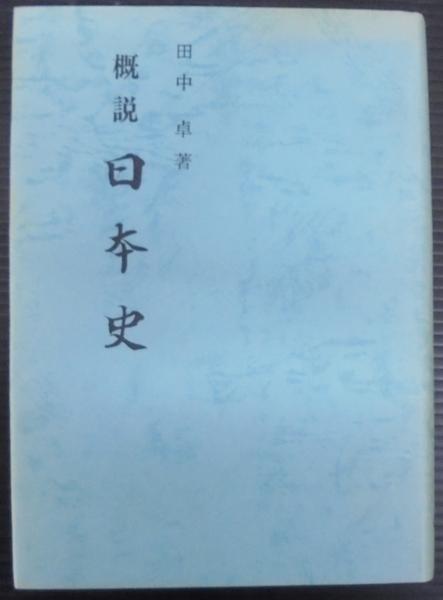 田中 卓 著
概説 日本史